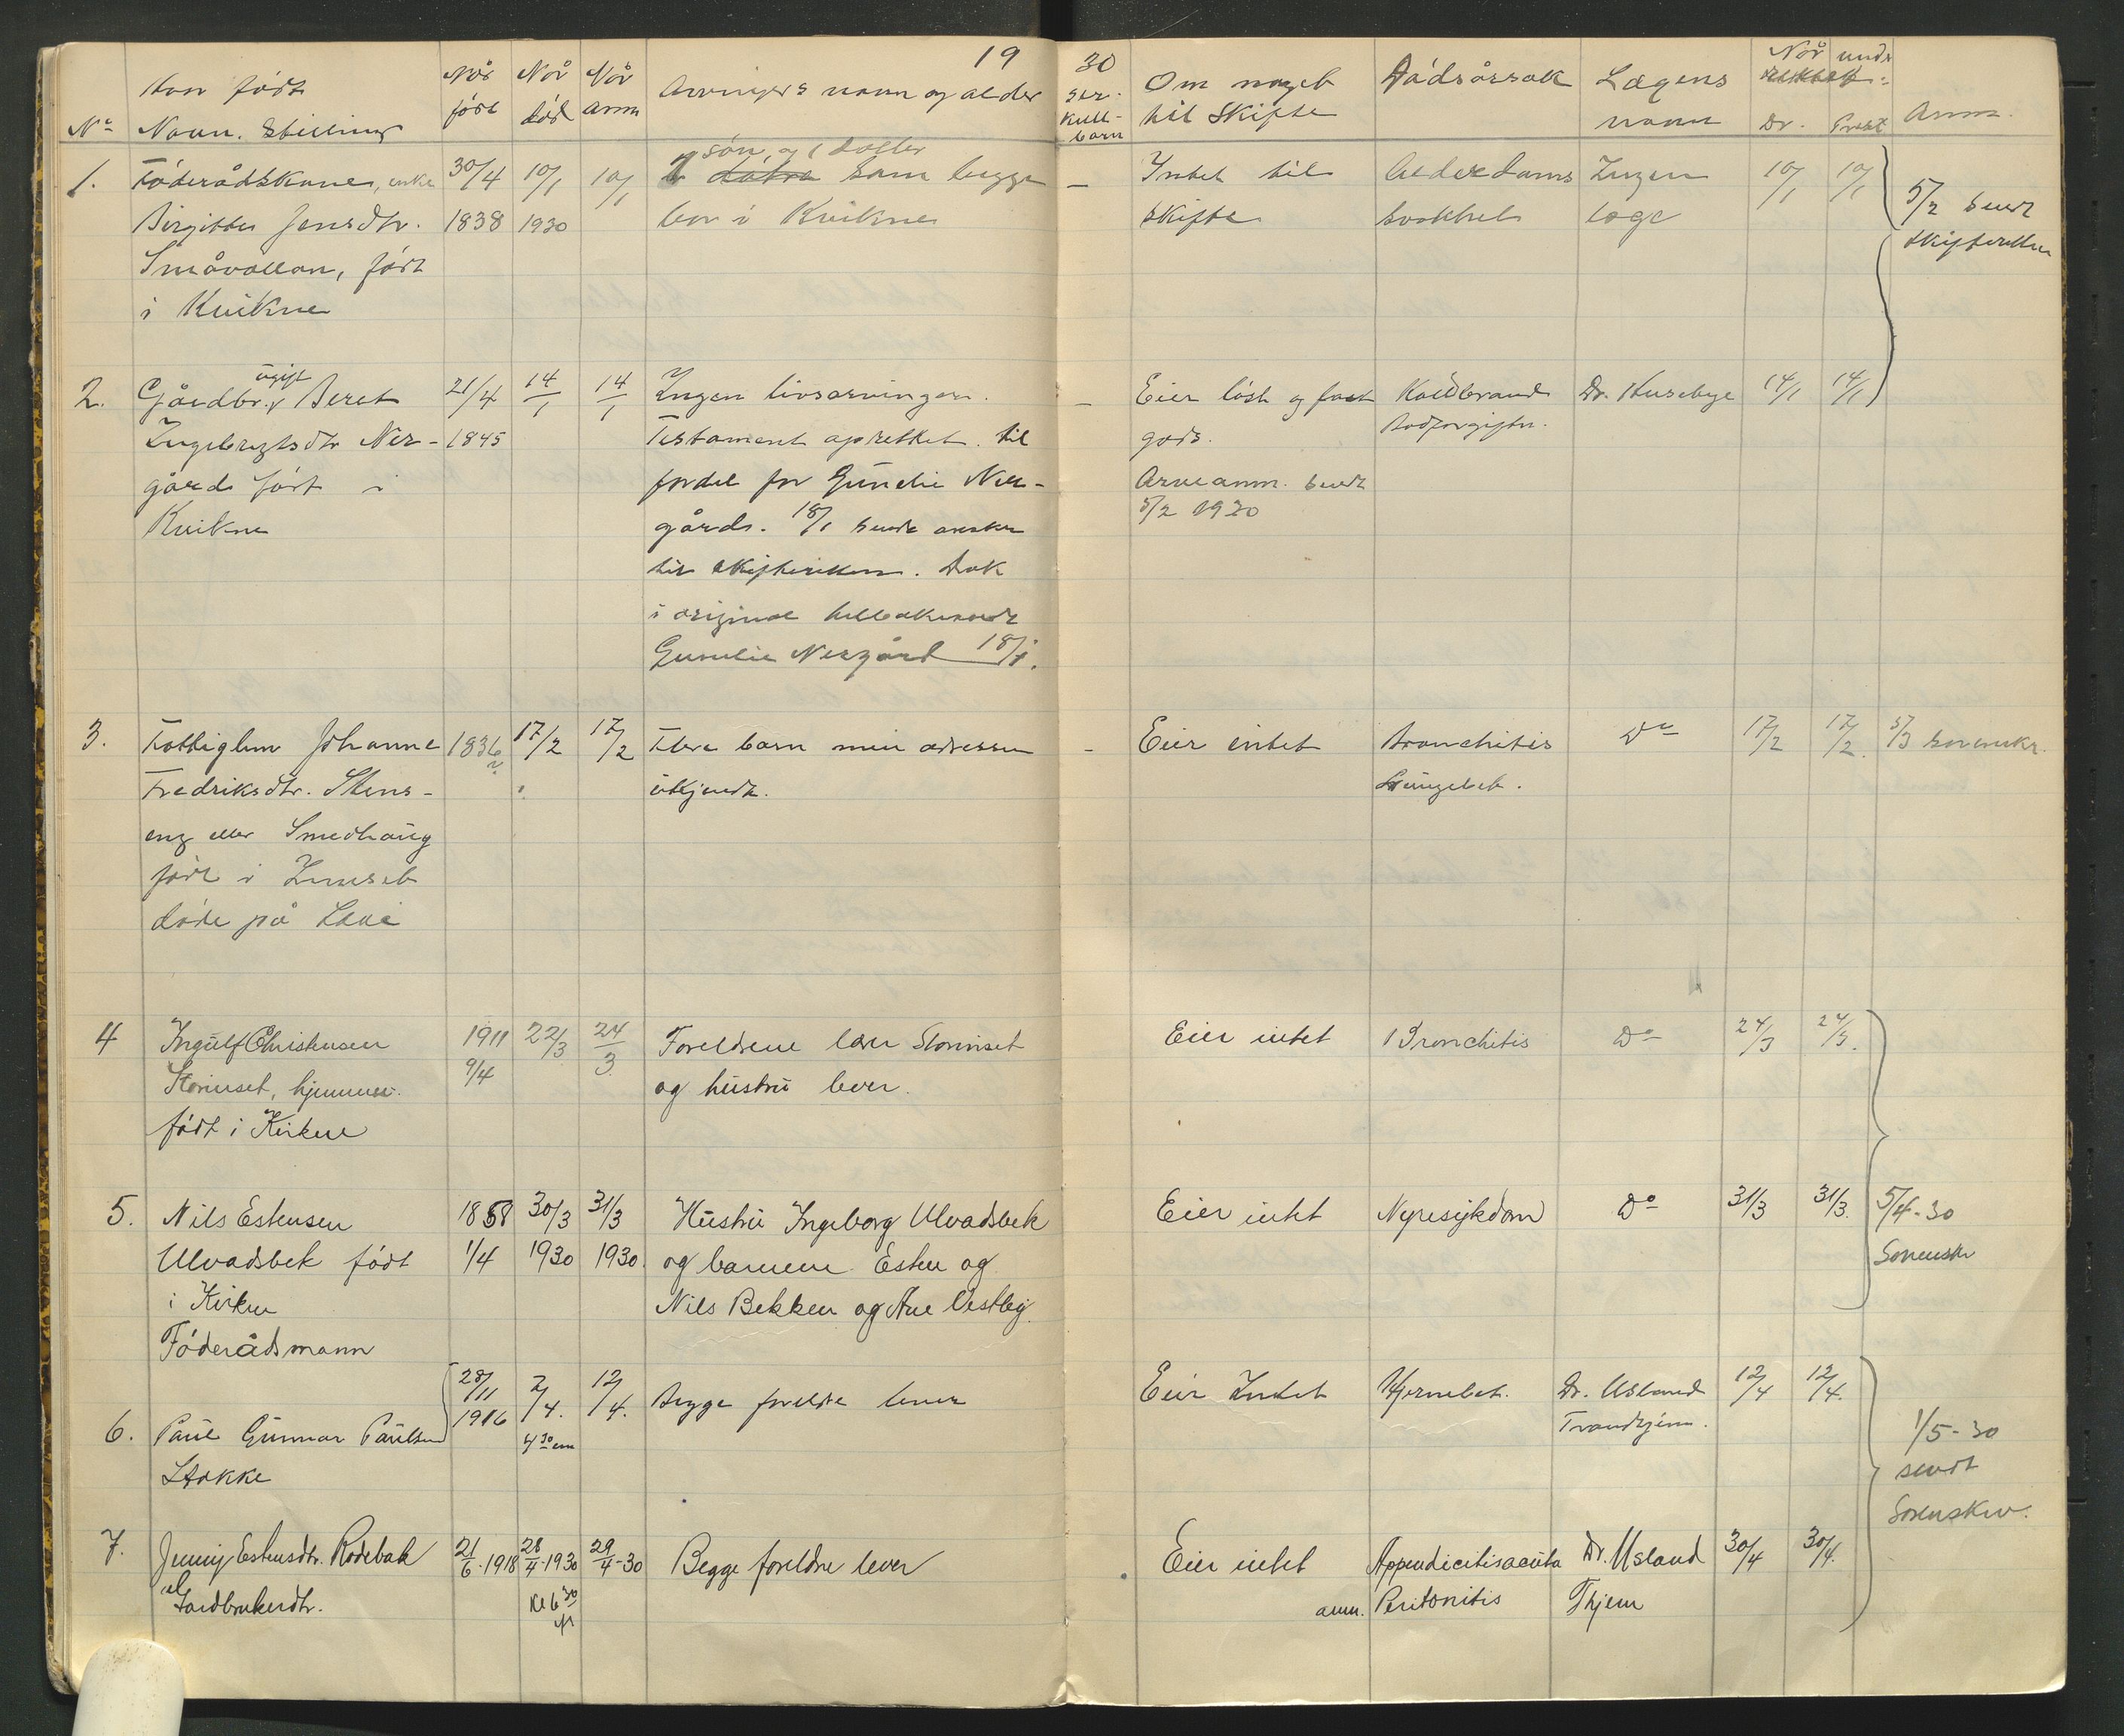 19 30
Nº
Hvor født
Navn. Stilling
Når født
Når død
Når anm
Arvingers navn og alder
Sær-
kull-
barn
Om noget
til Skifte
Dødsårsak
Lægens
navn
Når
Dr.
Prest
Anm.
1.
Føderådskone, enke
Birgitte Jensdtr.
Småvollan, født
i Kvikne
30/4
1838
10/1
1930
10/1
1 søn og 1 dotter
døtre som begge
bor i Kvikne
–
Intet til
skifte
Alderdoms
svakhet
Ingen
læge
10/1
10/1
5/2 sendt
skifteretten
2.
Gårdbr. ugift Beret
Ingebrigtsdtr Ner-
gård født i
Kvikne
21/4
1845
14/1
14/1
Ingen livsarvinger.
Testament oprettet til
fordel for Gunelie Ner-
gård. 18/1 sendt
til Skifteretten. Dok
i original tilbakesendt
Gunelie Nergård 18/1.
–
Eier løst og fast
gods.
Arveanm. sendt
5/2 1930
Koldbrand
Blodforgiftn.
Dr. Husebye
14/1
14/1
3.
Fattiglem Johanne
Fredriksdtr. Stens-
eng eller Smedhaug
født i Innset
døde på
1836
17/2
17/2
Flere barn men adressen
ukjendt.
–
Eier intet
Bronchitis
Lungebet.
Dº
17/2
17/2.
5/3 Sorenskr.
4
Ingulf Christensen
Storinset, hjemmev.
født i Kvikne
1911
9/4
22/3
24/3
Foreldrene Storinset
og hustru lever.
Eier intet
Bronchitis
Dº
24/3
24/3.
5.
Nils Estensen
Ulvadsbek født
i Kvikne
Føderådsmann
1858
1/4
30/3
1930
31/3
1930.
Hustru Ingeborg Ulvadsbek
og barnene Esten og
Nils Bekken og Ane Vestby.
Eier intet
Nyresykdom
Dº
31/3
31/3.
5/4-30
Sorensk
6.
Paul Gunnar Paulsen
Stokke
28/11
1916
2/4.
4 30 em
12/4.
Begge foreldre lever
Eier Intet
Hjernebet.
Dr. Usland
Trondhjem.
12/4
12/4.
1/5-30
sendt
Sorenskriv.
7.
Jenny Estensdtr. Rodebak
Gardbrukerdtr.
21/6.1918
28/4-1930
kl 6 30
29/4-30
Begge foreldre lever
Eier intet
anm.
Appendicitis acuta
Peritonitis
Dr. Usland
Thjem
30/4
30/4.